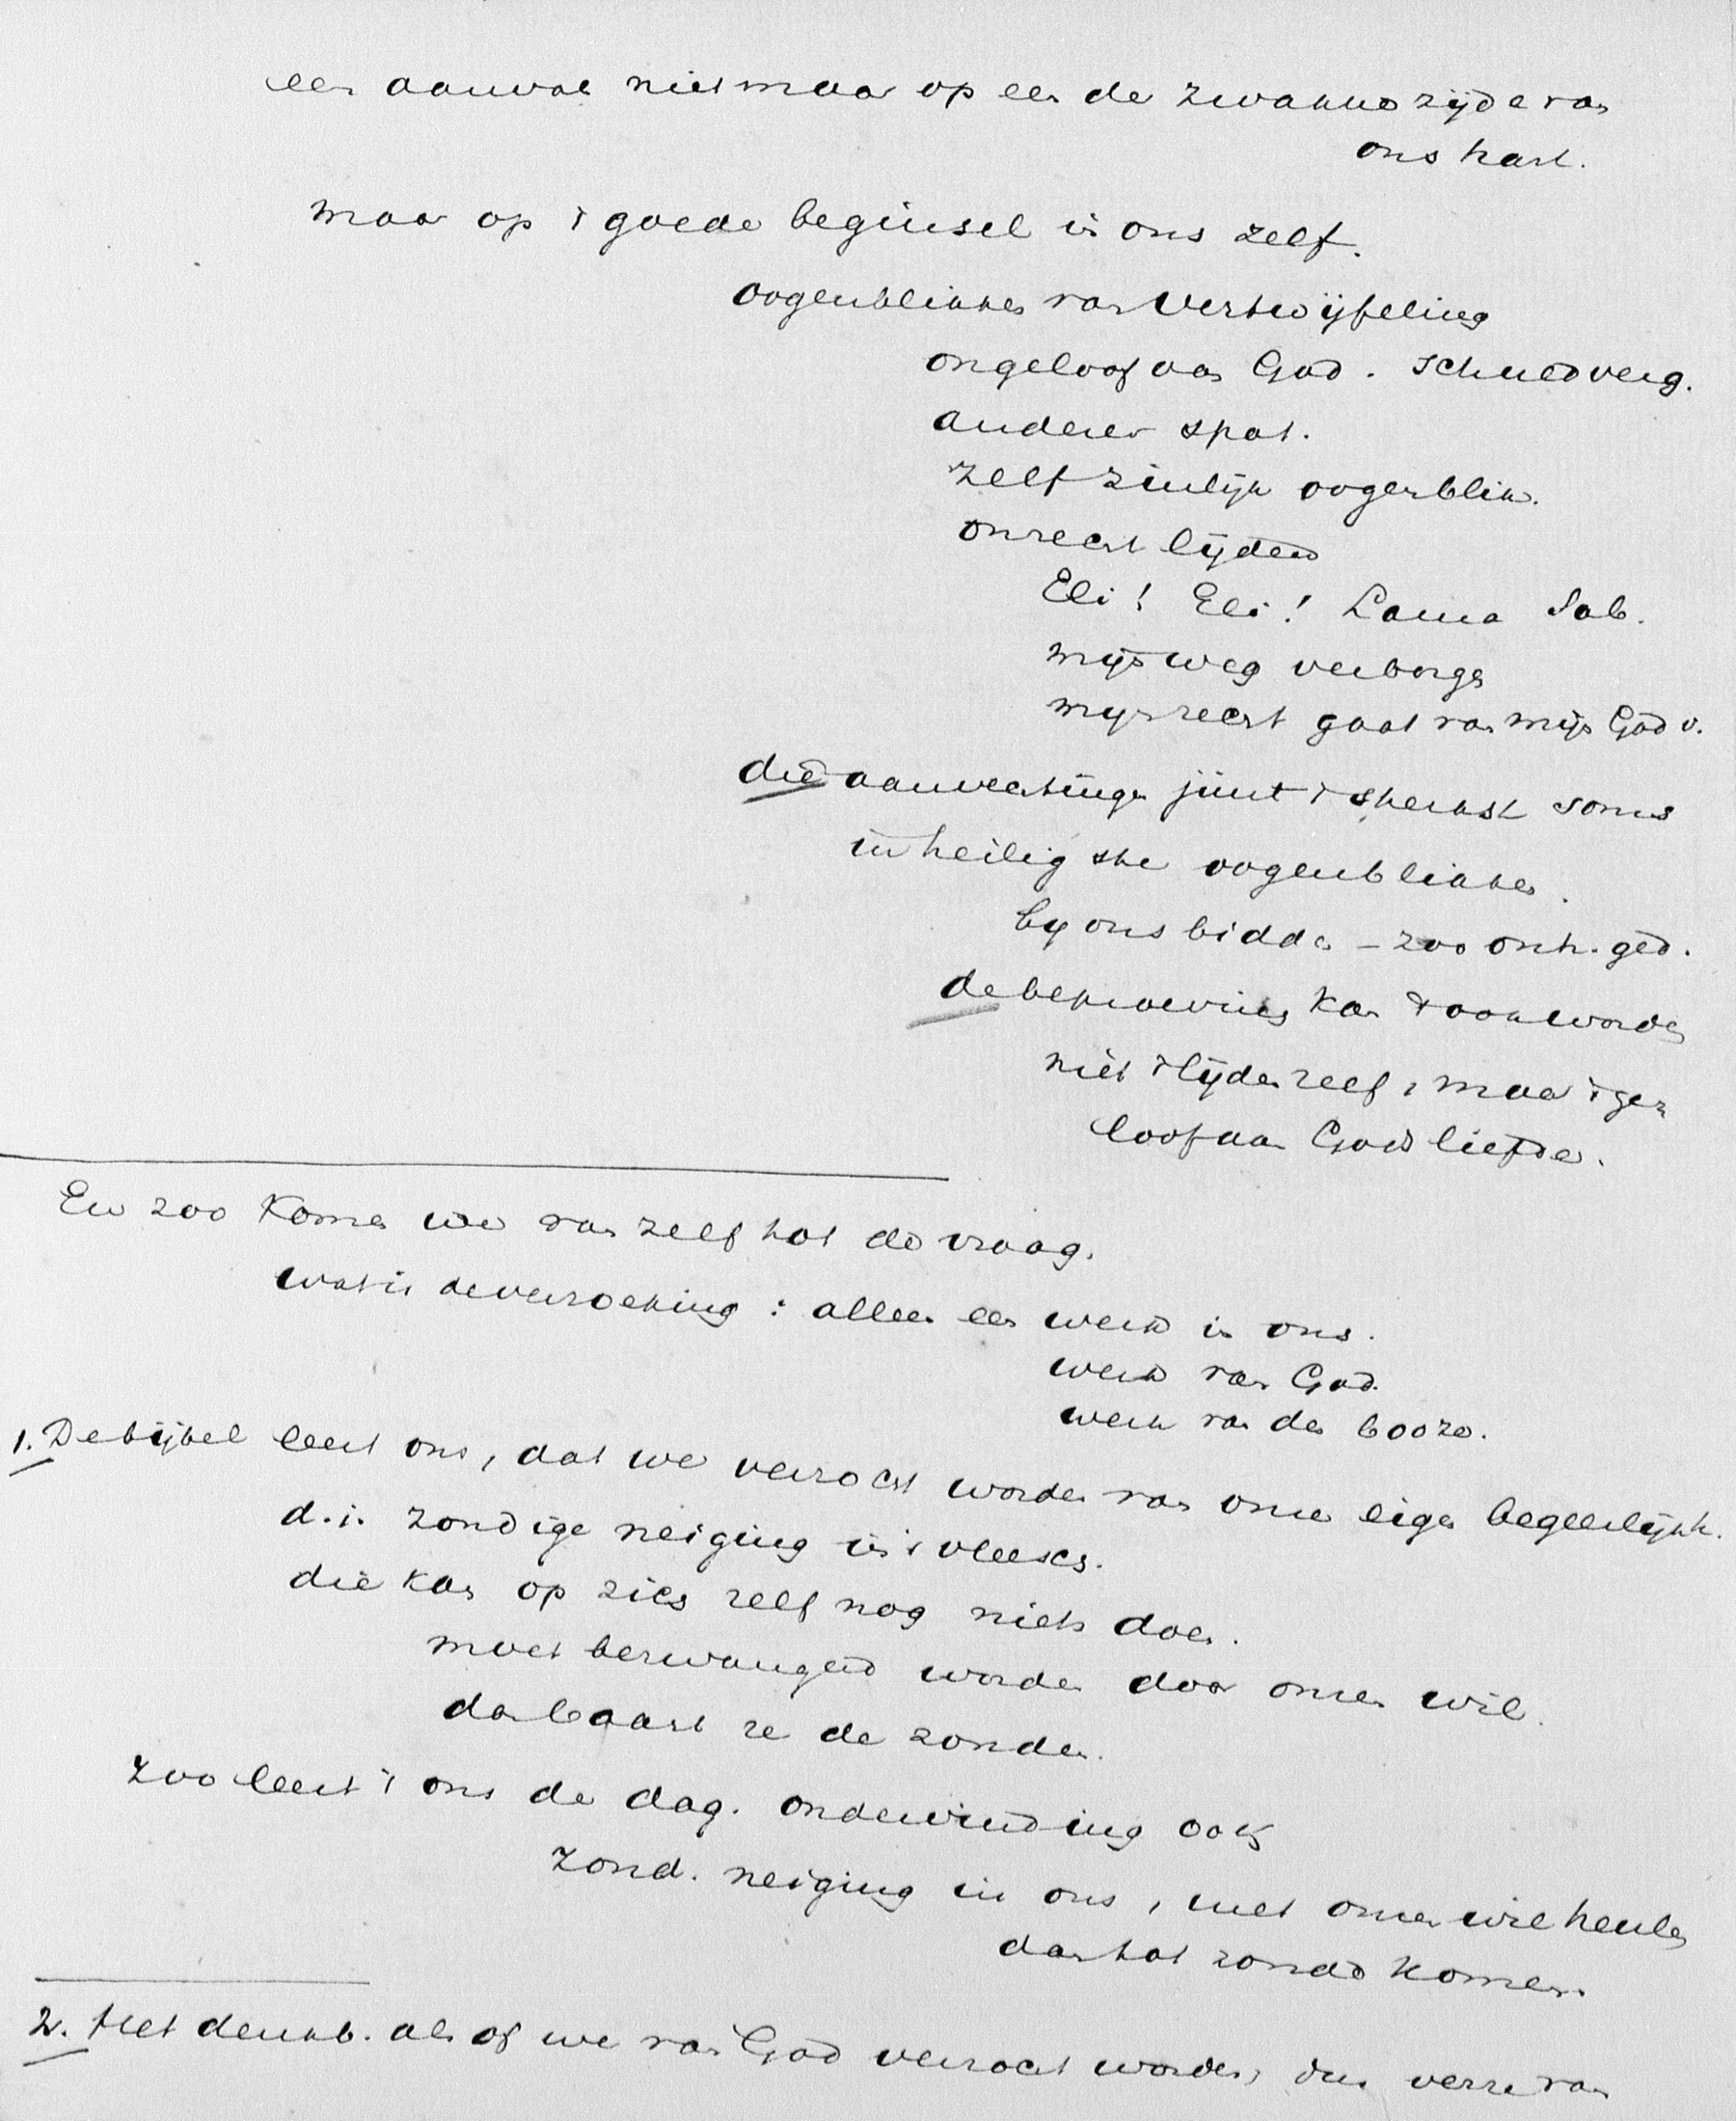 een aanval niet maar op een de zwakke zijde van
ons hart.
maar op 't goede beginsel in ons zelf.
oogenblikken van vertwijfeling
ongeloof aan God. schuldverg.
anderer spot.
zelf zinlijk oogenblik.
onrecht lijden
Eli! Eli! Lama Sab.
mijn weg verborgen
mijn recht gaat van mijn God v.
die aanvechtingen juist 't sterkst soms
in heilig ste oogenblikken.
by ons bidden – zoo onh. ged.
de beproeving kan 't ook worden
niet 't lijden zelf, maar 't ge=
loof aan Gods liefde.
En zoo komen we van zelf tot de vraag.
wat is de verzoeking: alleen een werk in ons.
werk van God.
werk van den booze.
1. De bijbel leert ons, dat we verzocht worden van onze eigen begeerlijkh.
d.i. zondige neiging in 't vleesch.
die kan op zich zelf nog niets doen.
moet bezwangerd worden door onzen wil.
dan baart ze de zonden.
Zoo leert 't ons de dag. ondervinding ook
zond. neiging in ons, met onzen wil heulen
dan tot zonde komen.
2. Het denkb. als of we van God verzocht worden, dus verre van